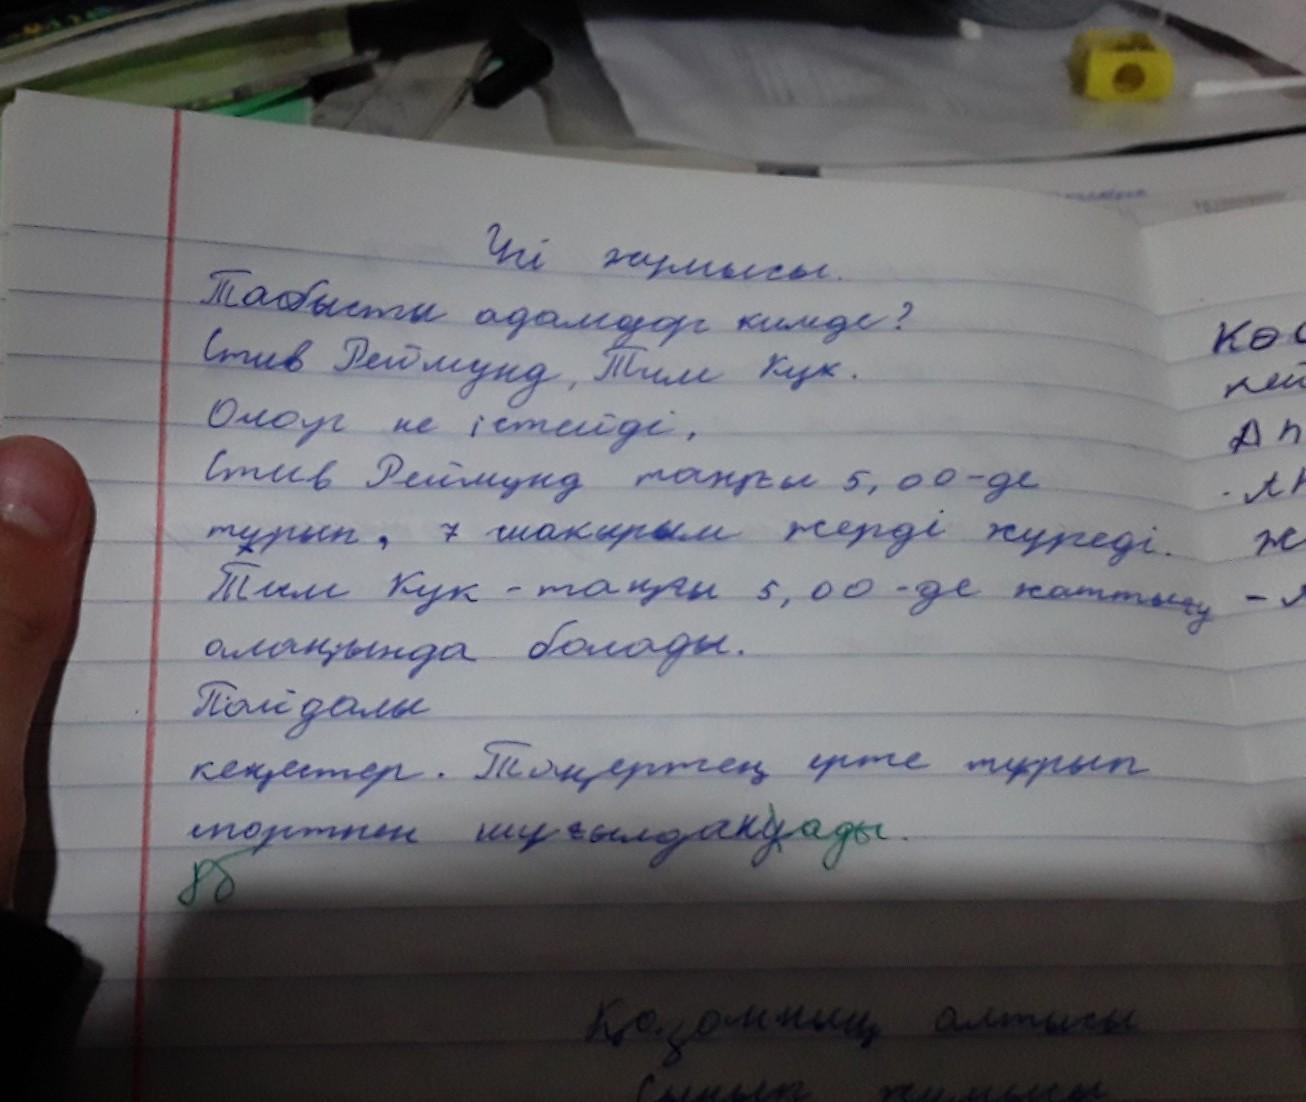 Үй жұмысы.
Табысты адамдар кимде?
Стив Реймунд, Тим Кук.
Олар не істейді.
Стив Реймунд таңғы 5,00-де
тұрып, 7 шақырым жерді жүреді.
Тим Кук - таңғы 5,00-де жаттығу
алаңында болады.
Пайдалы
кеңестер. Таңертең ерте тұрып
спортпен шұғылдануады.
8б
Қазанның алтысы
Сынып жұмысы